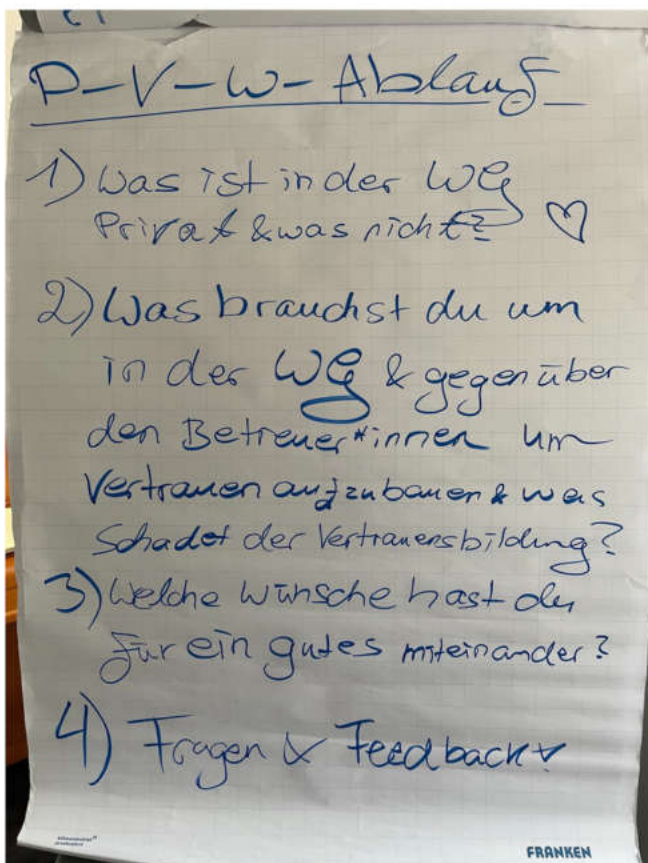 P-V-W-Ablauf
1) Was ist in der WG
Privat & was nicht? ♡
2) Was brauchst du um
in der WG & gegenüber
den Betreuer*innen um
Vertrauen aufzubauen & was
Schadet der Vertrauensbildung?
3) Welche Wünsche hast du
für ein gutes miteinander?
4) Fragen & Feedback
FRANKEN